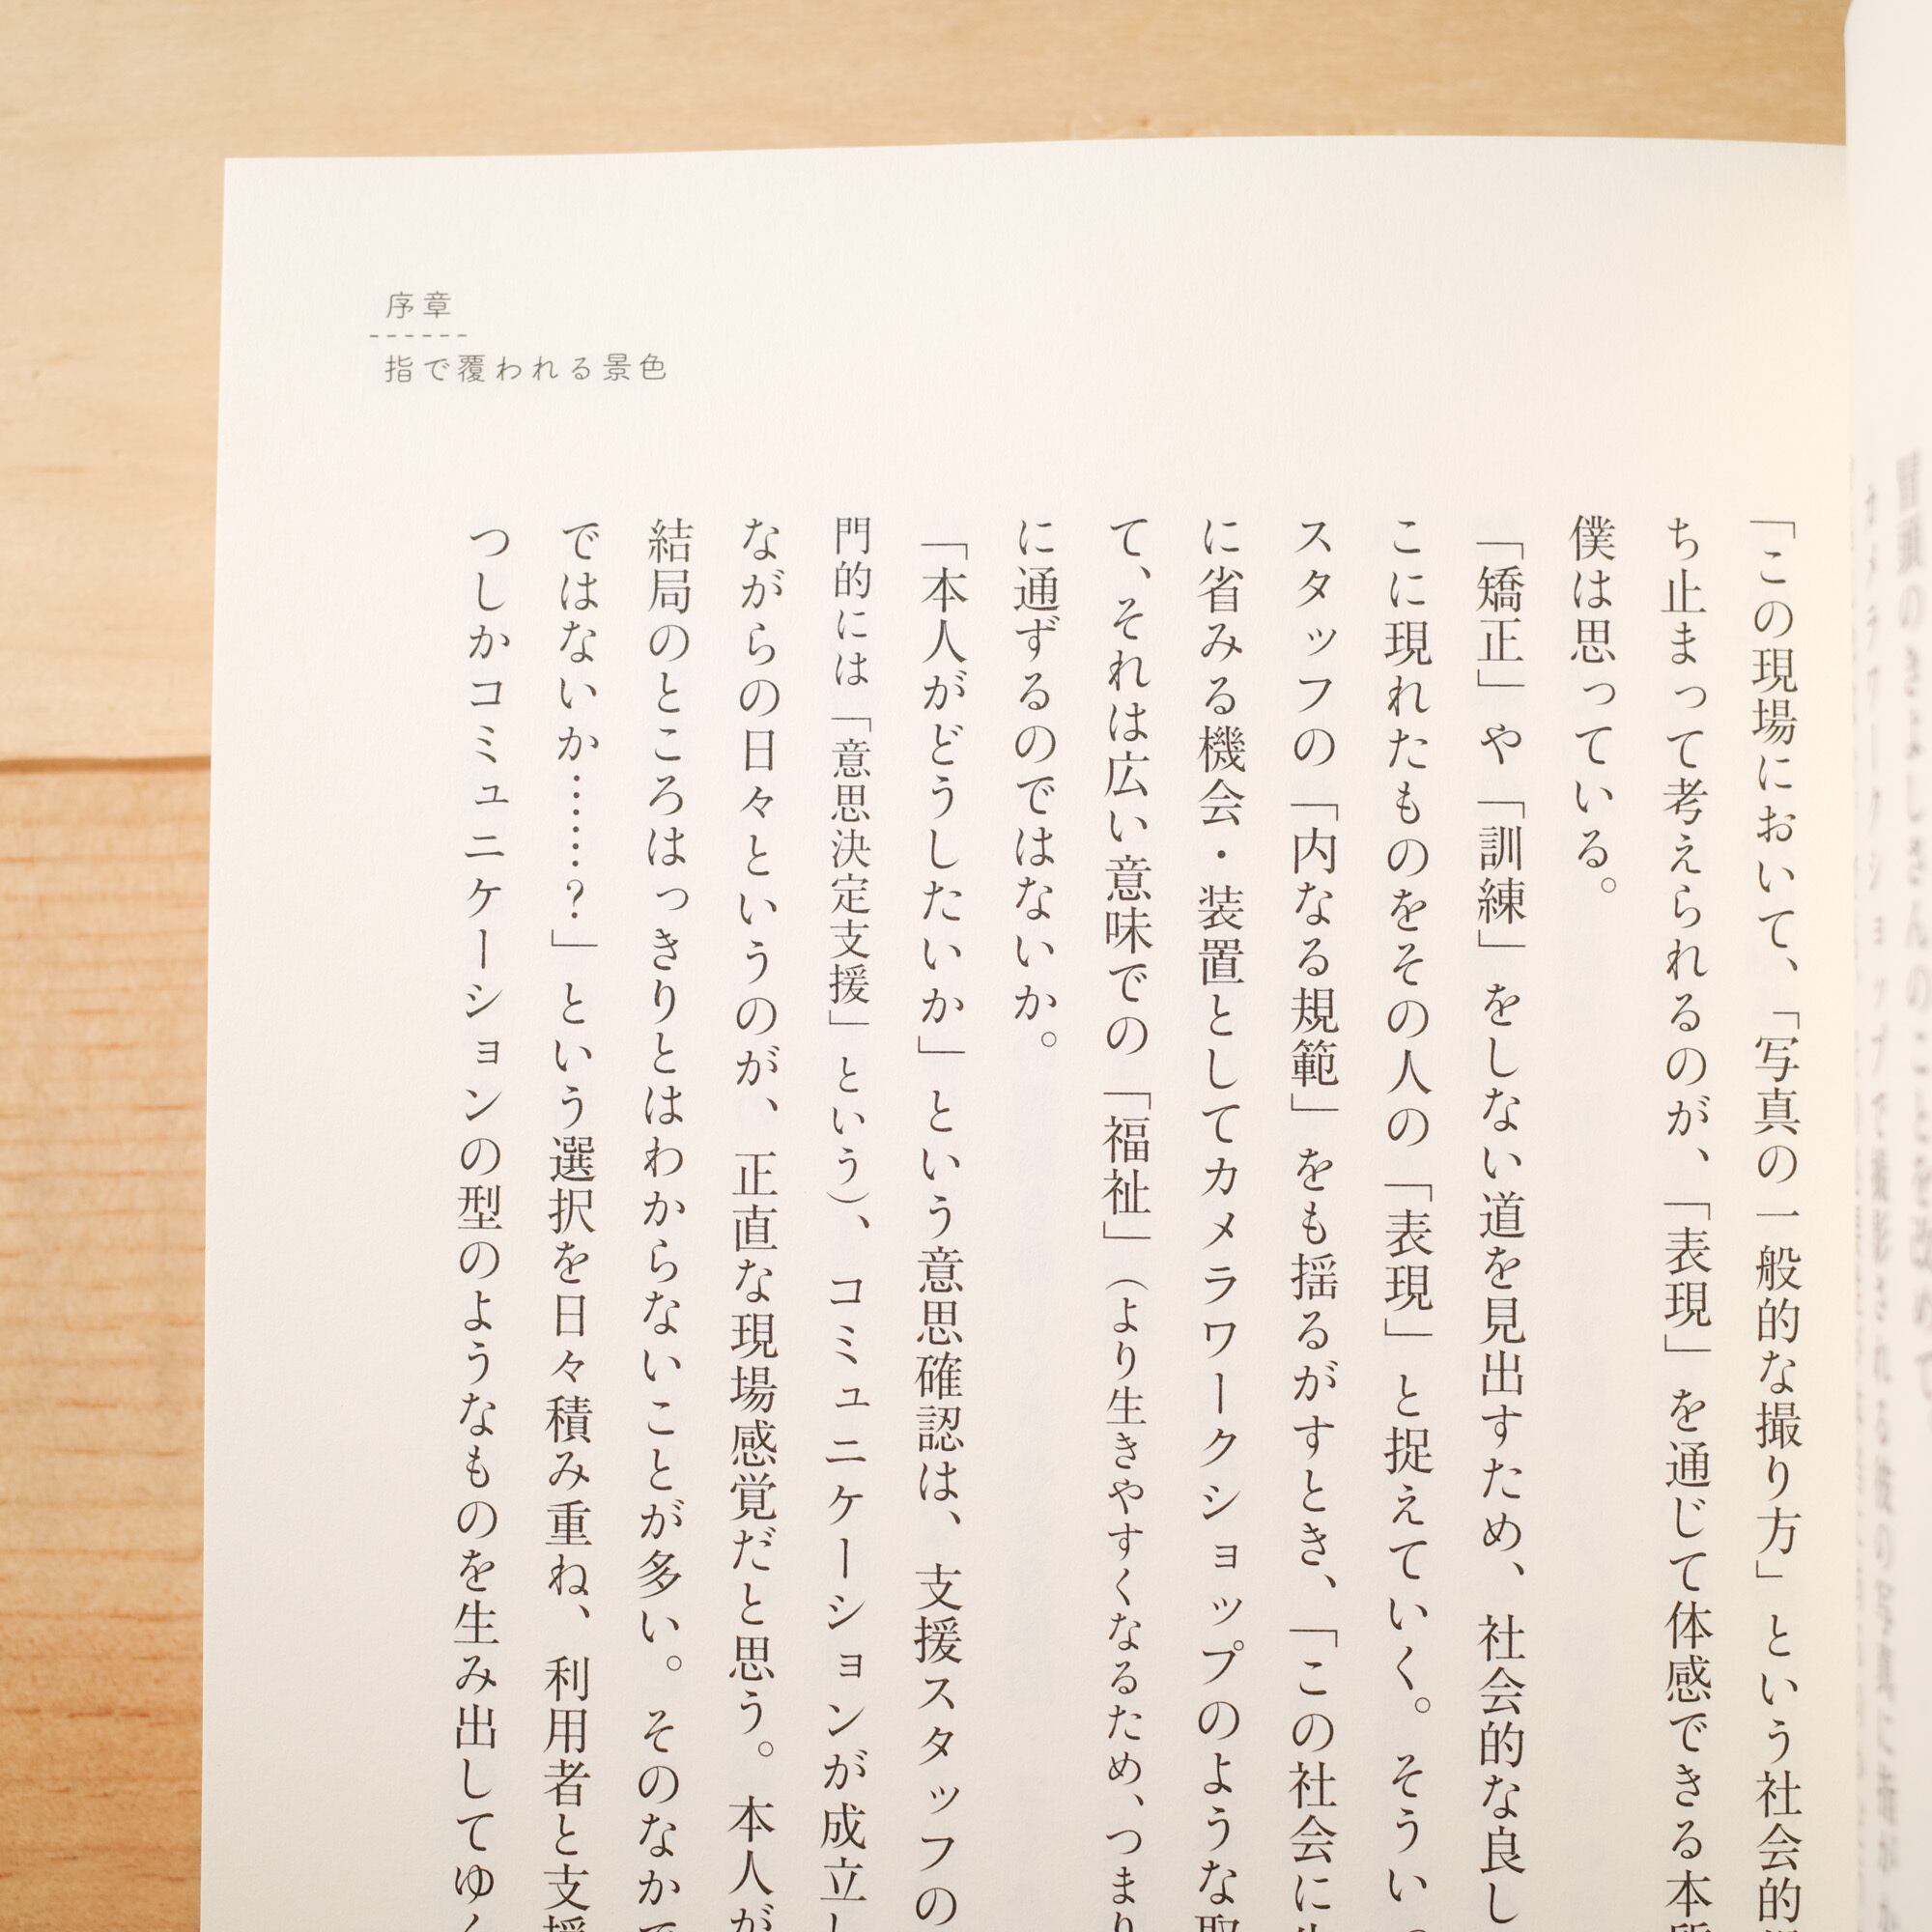 序章
指で覆われる景色
「この現場において、「写真の一般的な撮り方」という社会的
ち止まって考えられるのが、「表現」を通じて体感できる本質
僕は思っている。
「矯正」や「訓練」をしない道を見出すため、社会的な良し
こに現れたものをその人の「表現」と捉えていく。そうい
スタッフの「内なる規範」をも揺るがすとき、「この社会に
に省みる機会・装置としてカメラワークショップのような取
て、それは広い意味での「福祉」（より生きやすくなるため、つまり
に通ずるのではないか。
「本人がどうしたいか」という意思確認は、支援スタッフの
門的には「意思決定支援」という）、コミュニケーションが成立し
ながらの日々というのが、正直な現場感覚だと思う。本人が
結局のところはっきりとはわからないことが多い。そのなかで
ではないか……？」という選択を日々積み重ね、利用者と支援
つしかコミュニケーションの型のようなものを生み出してゆく